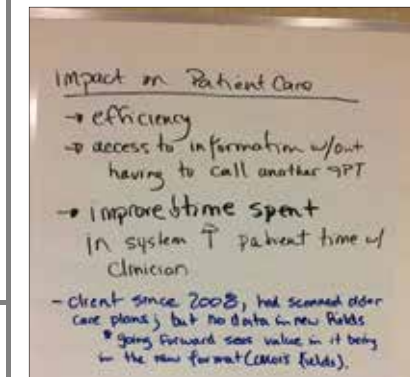 Impact on Patient Care
→ efficiency
→ access to information w/out
having to call another
→ improve time spent
in system ↑ patient time w/
Clinician
- client since 2008, had scanned older
care plans; but no data in new fields
* going forward sees value in it being
in the new format ( fields).